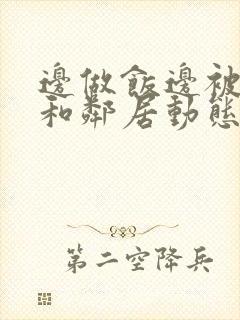 邊做飯邊被
和鄰居動態
第二空降兵